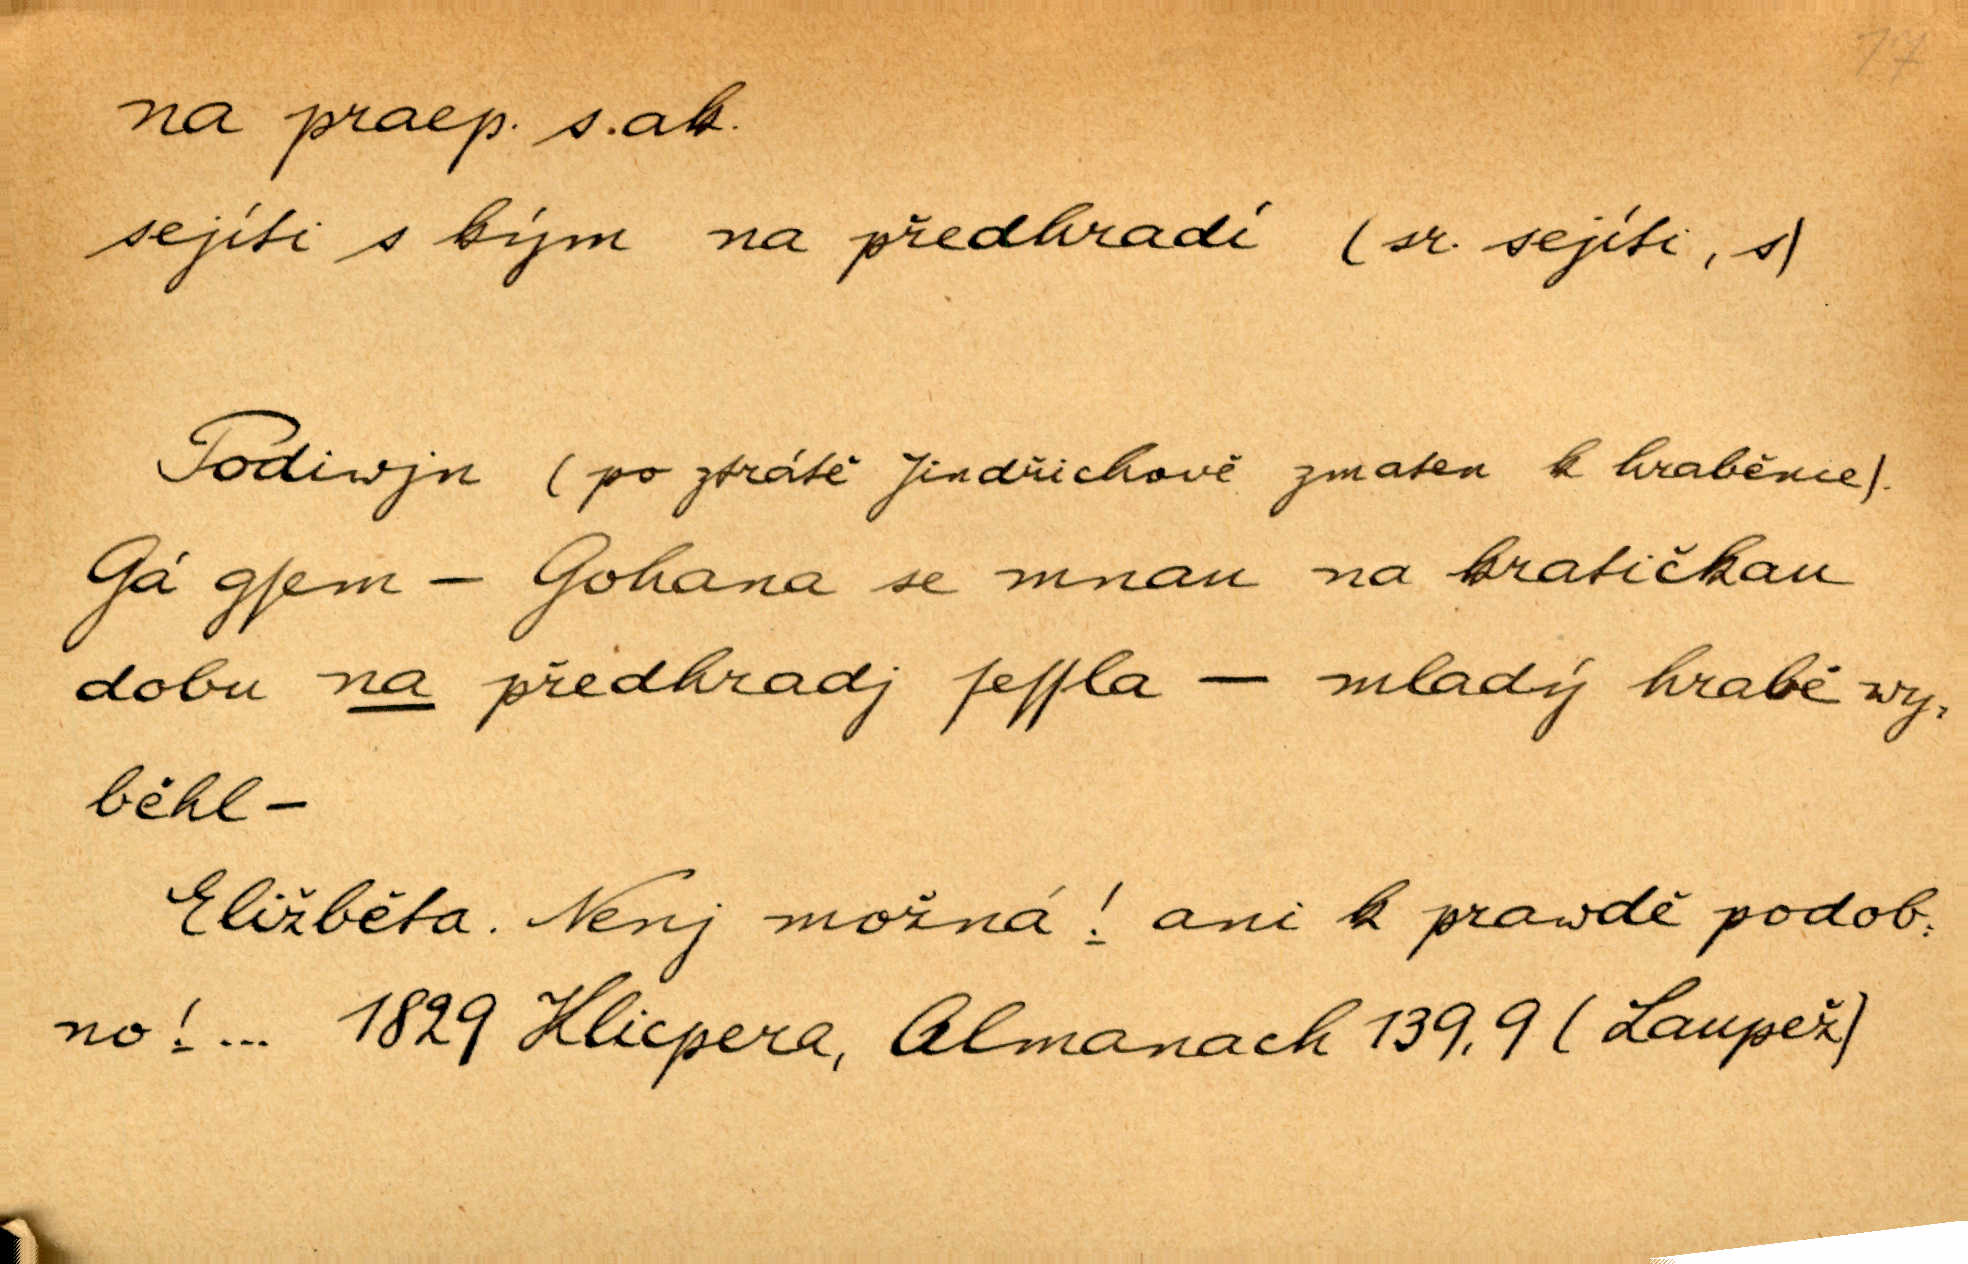 17
na praep. s. ak.
sejíti s kým na předhradí (sr. sejíti, s)
Podiwjn (po ztrátě Jindřichově zmaten k hraběnce).
Gá gſem — Gohana se mnau na kratičkau
dobu na předhradj ſeſſla — mladý hrabě wy,
běhl —
Eližběta. Nenj možná! ani k prawdě podob:
no! ... 1829 Klicpera, Almanach 139, 9 (Laupež)